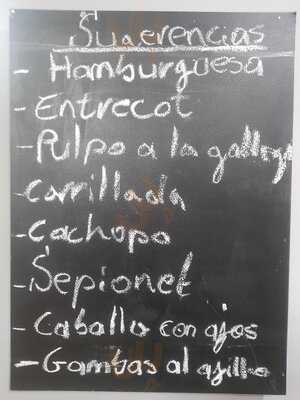 Sugerencias
- Hamburguesa
- Entrecot
- Pulpo a la gallega
- Carrillada
- Cachopo
- Sepionet
- Caballo con ajos
- Gambas al ajillo